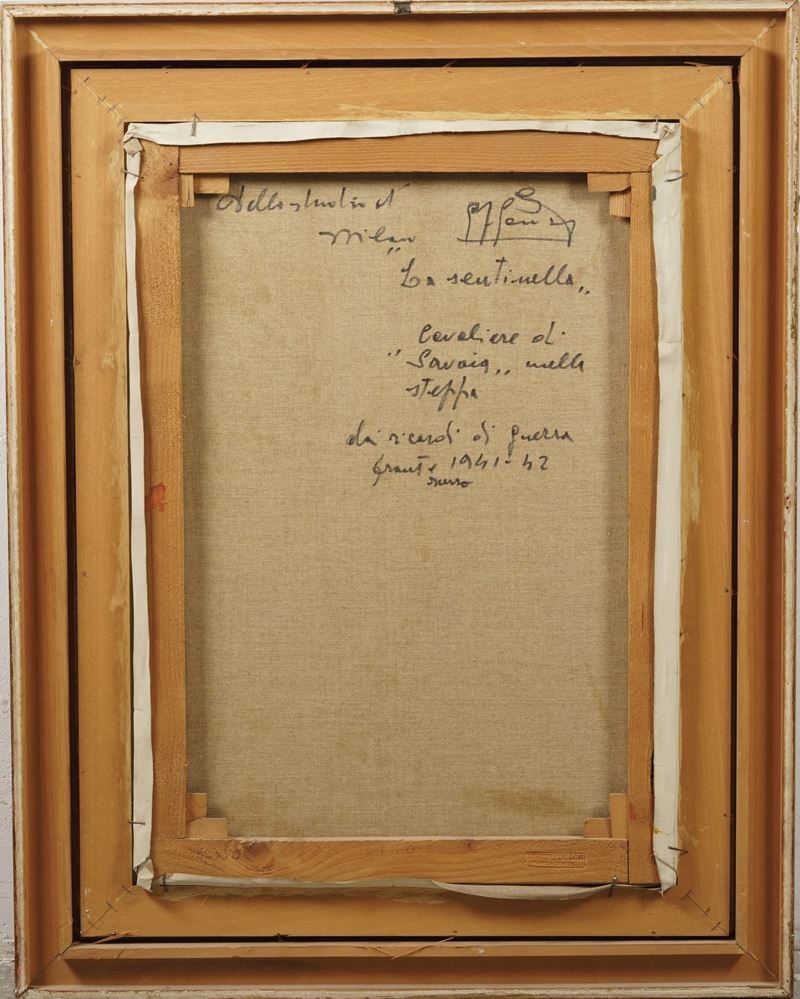 Dallo studio di
Milano
"La sentinella"
Cavaliere di
"Savoia" nella
steppa
dai ricordi di guerra
fronte 1941-42
russo